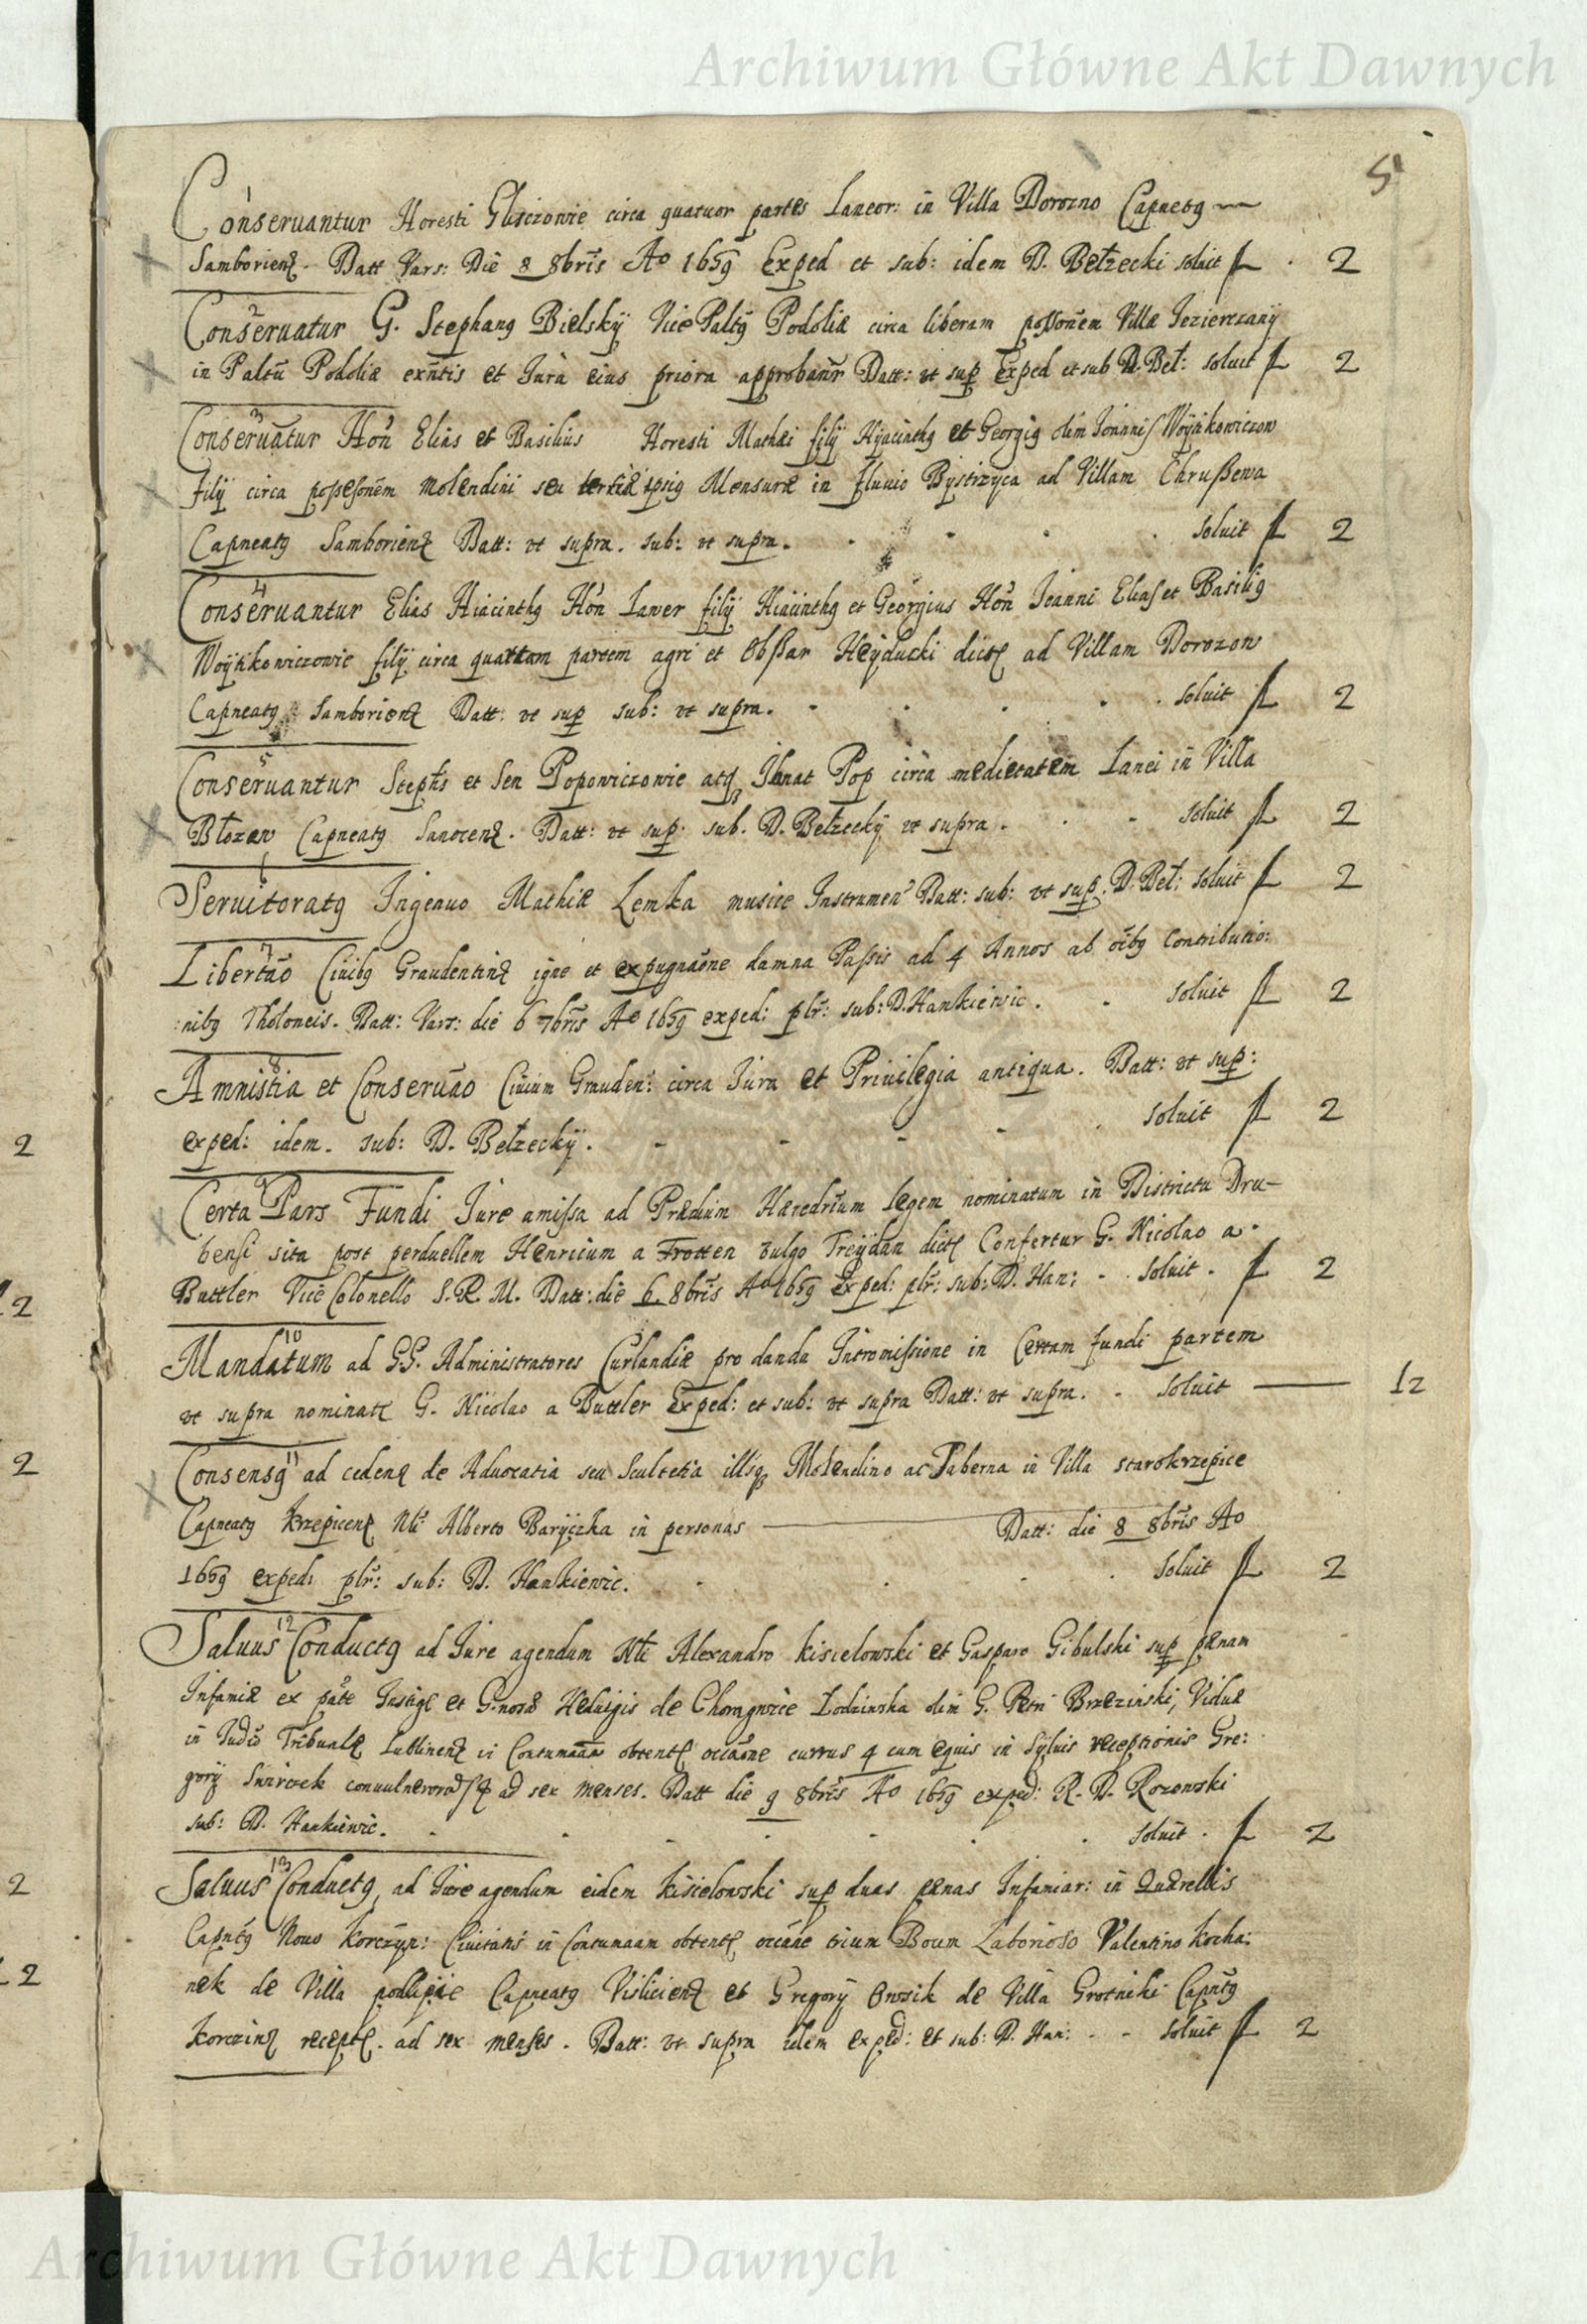 Archiwum Główne Akt Dawnych
5
1
Conservantur Horesti circa quatuor partes Laneor: in Villa Dorozno Capneatg
Samborien. Datt Vars: Die 8 8bris Ao 1659 Exped et sub: idem D. Bełzecki soluit fl 2
2
Conseruatur G. Stephang Bielskÿ Vice Paltg Podoliæ circa liberam possonem Villæ Jezierczanÿ
in Paltu Podoliæ exntis et Jura eius priora approbant Datt: vt sup Exped et sub D. Beł: soluit fl 2
3
Conseruatur Hon Elias et Basilius Horesti Mathæi filÿ Hÿacinthg et Georgig olim Joannis Woÿtkowiczow
filÿ circa possesonem Molendini seu tertiæ ipsig Mensuræ in fluuio Bÿstrzÿca ad Villam Chrußewa
Capneatg Samborien Datt: vt supra. sub: vt supra. soluit fl 2
4
Conseruantur Elias Hiacinthg Hon Lawer filÿ Hiacinthg et Georgius Hon Joanni Elias et Basilig
Woÿtkowiczowie filÿ circa quartam partem agri et Obßar Heÿducki dict ad Villam Dorozow
Capneatg Samborien Datt: vt sup sub: vt supra. soluit fl 2
5
Conseruantur Stephs et Sen Popowiczowie atq Ihnat Pop circa medietatem Lanei in Villa
Błozew Capneatg Sanocen. Datt: vt sup. sub. D. Bełzeckÿ vt supra. soluit fl 2
6
Seruitoratg Ingenuo Mathiæ Lemka musice Instrumen Datt: sub: vt sup: D. Beł: soluit fl 2
7
Libertao Ciuibg Graudentin igne et expugnaone damna Passis ad 4 Annos ab oibg contributio:
:nibg Tholoneis. Datt: Vars: die 6 7bris Ao 1659 exped: plr: sub: D. Hankiewic. soluit fl 2
8
Amnistia et Conseruao Ciuium Grauden: circa Jura et Priuilegia antiqua. Datt: vt sup:
exped: idem. sub: D. Bełzeckÿ. soluit fl 2
9
Certa Pars Fundi Jure amissa ad Prædium Hæredrium legem nominatum in Districtu Dru-
bensi sita post perduellem Henricum a Trotten vulgo Treÿdan dict Confertur G. Nicolao a
Buttler Vice Colonello S. R. M. Datt: die 6. 8bris Ao 1659 exped: plr: sub: D. Han: soluit fl 2
10
Mandatum ad GG. Administratores Curlandiæ pro danda Intromissione in Certam fundi partem
vt supra nominat G. Nicolao a Buttler Exped: et sub: vt supra Datt: vt supra. soluit 12
11
Consensg ad ceden de Aduocatia seu Scultetia illisq Molendino ac Taberna in Villa starokrzepice
Capneatg Krzepicen Nli Alberto Barÿczka in personas Datt: die 8 8bris Ao
1659 exped: plr: sub: D. Hankiewic. soluit fl 2
12
Saluus Conductg ad Jure agendum Nli Alexandro Kisielowski et Gasparo Gibulski sup pænam
Infamiæ ex pate Instig et G.nosæ Heduigis de Chomentowice Lodzinska olim G. Petri Brzezinski, Viduæ
in Judio Tribunali Lublinen in Contumaam obtent occaone currus 4 cum equis in Sÿluis receptionis Gre:
gorÿ Swirczek ad sex menses. Datt die 9 8bris Ao 1659 exped: R. D. Rozewski
sub: D. Hankiewic. soluit fl 2
13
Saluus Conductg, ad Jure agendum eidem Kisielowski sup duas pænas Infamiar: in Quærellis
Capntg Nouo Korczÿn: Ciuitatis in Contumaam obtent occaone trium Boum Laborioso Valentino Kocha:
nek de Villa podlipie Capneatg Vislicien et Gregorÿ Owsik de Villa Grotniki Capntg
Korczin recept. ad sex menses. Datt: vt supra idem exped: et sub: D. Han: soluit fl 2
2
2
2
2
2
Archiwum Główne Akt Dawnych